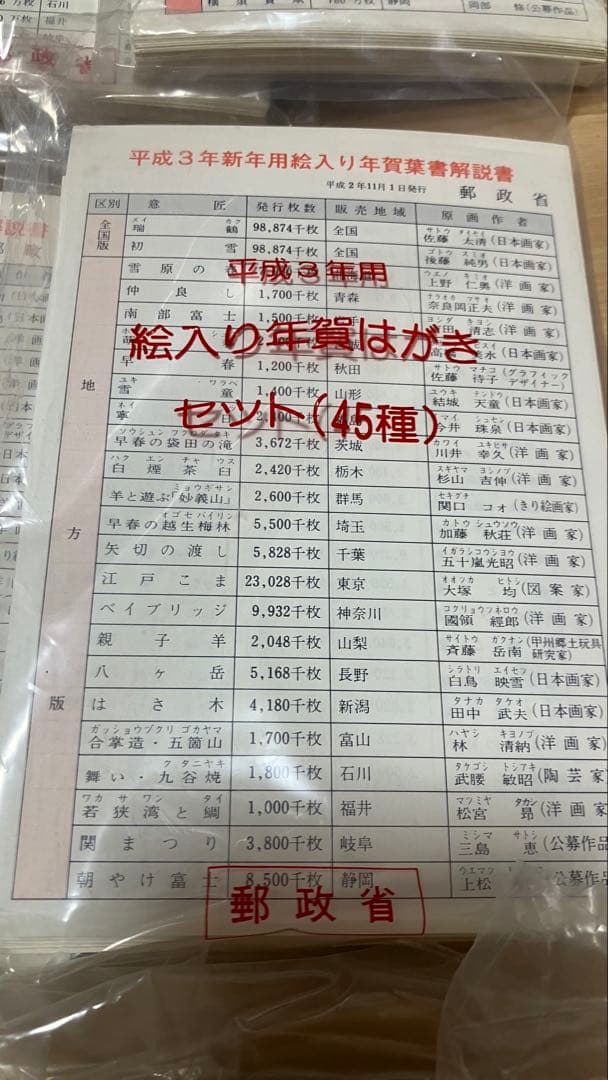 万枚 石川
万枚 福井
岐阜
静岡
岡部
(公募作品)
平成3年新年用絵入り年賀葉書解説書
平成2年11月1日発行 郵政省
区別 意匠 発行枚数 販売地域 原画作者
全国版 瑞鶴 98,874千枚 全国 佐藤太清(日本画家)
初雪 98,874千枚 全国 後藤純男(日本画家)
地方版
雪原の 上野仁奥(洋画家)
平成3年用
仲良し 1,700千枚 青森 奈良岡正夫(洋画家)
南部富士 1,500千枚 清志(洋画家)
絵入り年賀はがき
早春 1,200千枚 秋田 佐藤待子(グラフィックデザイナー)
雪童 1,400千枚 山形 結城天童(日本画家)
セット(45種)
寧日 今井珠泉(日本画家)
早春の袋田の滝 3,672千枚 茨城 川井幸久(洋画家)
白煙茶臼 2,420千枚 栃木 杉山吉伸(洋画家)
羊と遊ぶ「妙義山」 2,600千枚 群馬 関口コオ(きり絵画家)
早春の越生梅林 5,500千枚 埼玉 加藤秋荘(洋画家)
矢切の渡し 5,828千枚 千葉 五十嵐光昭(洋画家)
江戸こま 23,028千枚 東京 大塚均(図案家)
ベイブリッジ 9,932千枚 神奈川 國領經郎(洋画家)
親子羊 2,048千枚 山梨 斉藤岳南(甲州郷土玩具研究家)
八ヶ岳 5,168千枚 長野 白鳥映雪(日本画家)
はさ木 4,180千枚 新潟 田中武夫(日本画家)
合掌造・五箇山 1,700千枚 富山 林清納(洋画家)
舞い・九谷焼 1,800千枚 石川 武腰敏昭(陶芸家)
若狭湾と鯛 1,000千枚 福井 松宮昻(洋画家
関まつり 3,800千枚 岐阜 三島恵(公募作品
朝やけ富士 8,500千枚 静岡 上松 公募作品
郵政省